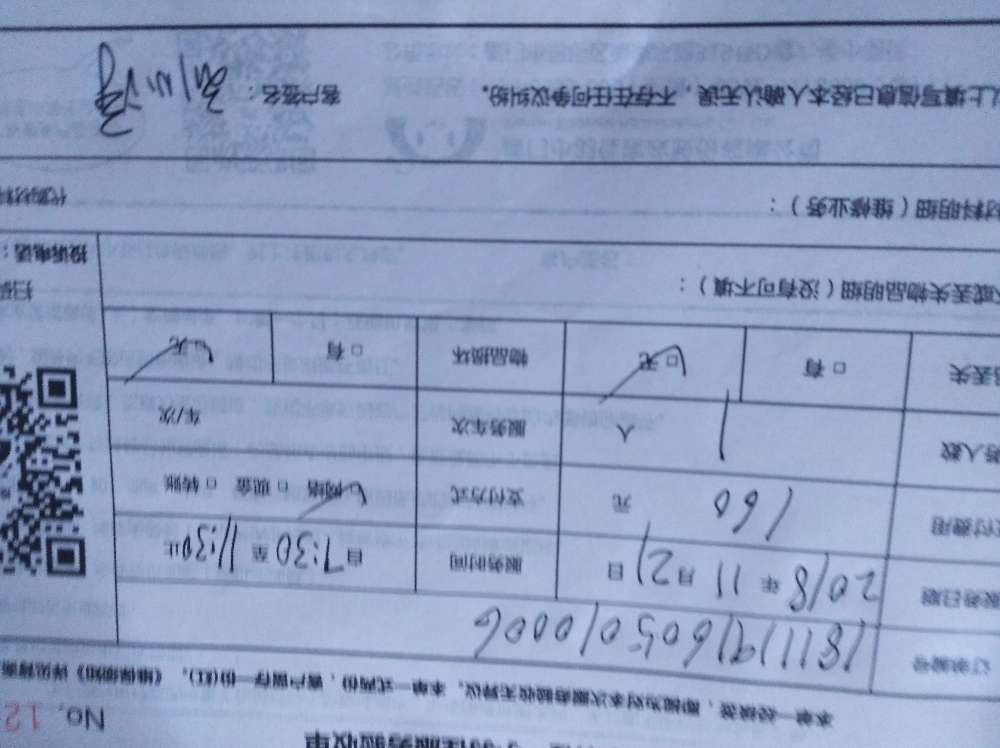 服务验收单
No. 12
本单一经续签，即视为对本次服务验收无异议。本单一式两份，客户留存一份(红)。《维保须知》详见背面
订单编号 1811191605010006
服务日期 2018 年 11 月 21 日 服务时间 自 7:30 至 11:30 止
支付费用 160 元 支付方式 □ 网络 □ 现金 □ 转账
务人数 1 人 服务车次 车/次
品丢失 □ 有 □ 无 物品损坏 □ 有 □ 无
或丢失物品明细（没有可不填）：
扫码
投诉电话：
材料明细（维修业务）：
代购材料
以上填写信息已经本人确认无误，不存在任何争议纠纷。 客户签名：